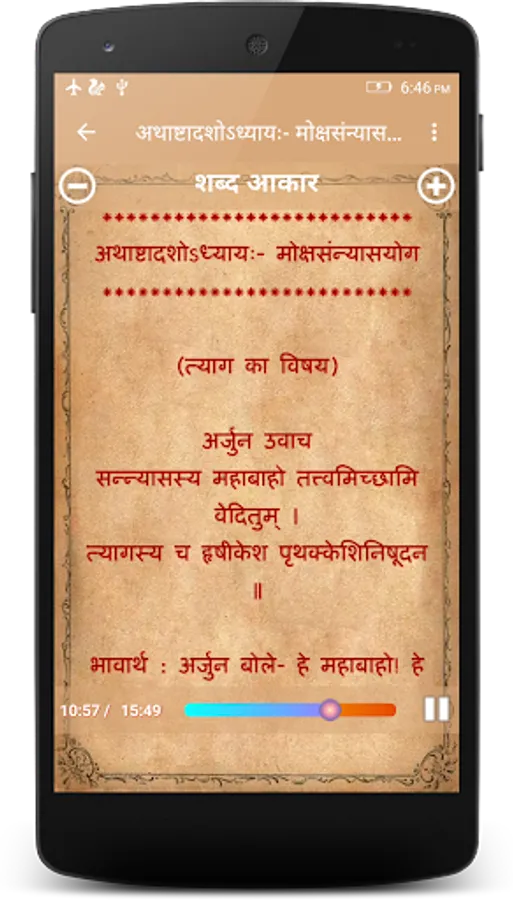 6:46 PM
अथाष्टादशोऽध्यायः- मोक्षसंन्यास...
शब्द आकार
************************
अथाष्टादशोऽध्यायः- मोक्षसंन्यासयोग
************************
(त्याग का विषय)
अर्जुन उवाच
सन्न्यासस्य महाबाहो तत्त्वमिच्छामि
वेदितुम् ।
त्यागस्य च हृषीकेश पृथक्केशिनिषूदन
॥
भावार्थ : अर्जुन बोले- हे महाबाहो! हे
10:57 / 15:49